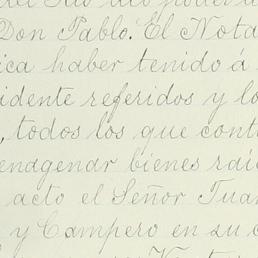 Don Pablo. El Nota
ica haber tenido á
idente referidos y lo
, todos los que cont
enagenar bienes raic
acto el Señor Juan
y Campero en su c